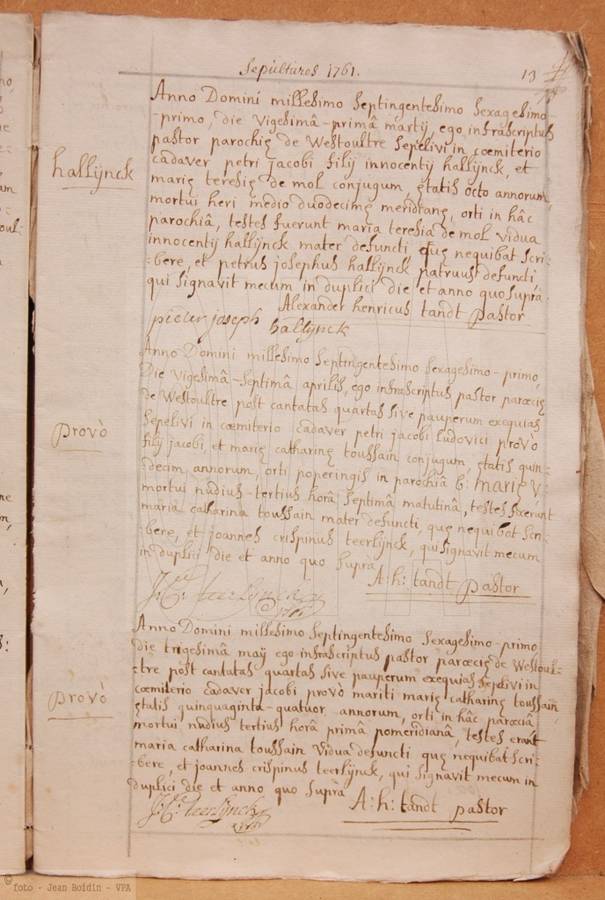 Sepultures 1761.
13
hallijnck
Anno Domini millesimo Septingentesimo Sexagesimo-
-primo, die vigesimâ-primâ martij, ego infrascriptus
pastor parochię de Westoultre Sepelivi in cœmiterio
cadaver petri jacobi filij innocentij hallijnck, et
marię teresię de mol conjugum, ętatis octo annorum,
mortui heri medio duodecimę meridianę, orti in hâc
parochiâ, testes fuerunt maria teresia de mol vidua
innocentij hallijnck mater defuncti quę nequibat scri-
:bere, et petrus josephus hallijnck patruus defuncti
qui signavit mecum in duplici die et anno quo suprà
Alexander henricus tandt pastor
pieter joseph hallynck
provò
Anno Domini millesimo Septingentesimo Sexagesimo-primo,
Die vigesimâ-Septimâ aprilis, ego infrascriptus pastor parœcię
de Westoultre post cantatas quartas sive pauperum exequias
Sepelivi in cœmiterio Cadaver petri jacobi Ludovici provò
filij jacobi, et marię catharinę toussain conjugum, ętatis quin-
:decim annorum, orti poperingis in parochiâ b: marię v:
mortui nudius-tertius horâ Septimâ matutinâ, testes fuerunt
maria catharina toussain mater defuncti, quę nequibat scri-
:bere, et joannes crispinus teerlijnck, qui signavit mecum
in duplici die et anno quo suprà
A: h: tandt pastor
J: C: teerlynck
provò
Anno Domini millesimo Septingentesimo Sexagesimo-primo
die trigesimâ maij ego infrascriptus pastor parœcię de Westoul:
:tre post cantatas quartas sive pauperum exequias Sepelivi in
cœmiterio Cadaver jacobi provò mariti marię catharinę toussain,
ętatis quinquaginta-quatuor annorum, orti in hâc parœciâ
mortui nudius tertius horâ primâ pomeridianâ, testes erant
maria catharina toussain vidua defuncti quę nequibat scri-
:bere, et joannes crispinus teerlijnck, qui signavit mecum in
duplici die et anno quo suprà
A: h: tandt pastor
J: C: teerlynck
© foto - Jean Boidin - VPA